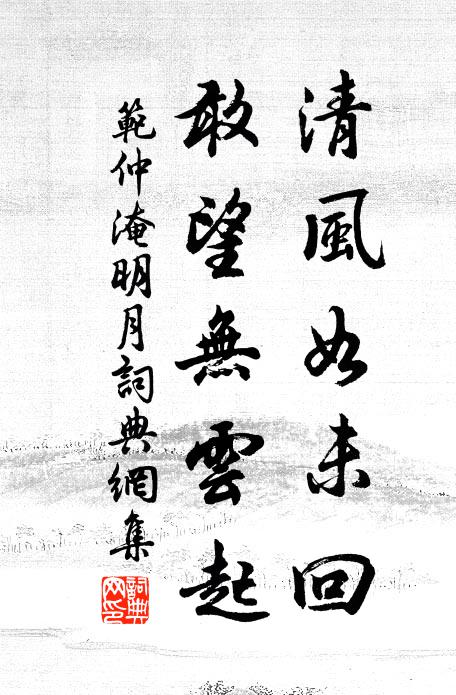 清風如未回
敢望無雲起
範仲淹明月詞典網集
詞典网印